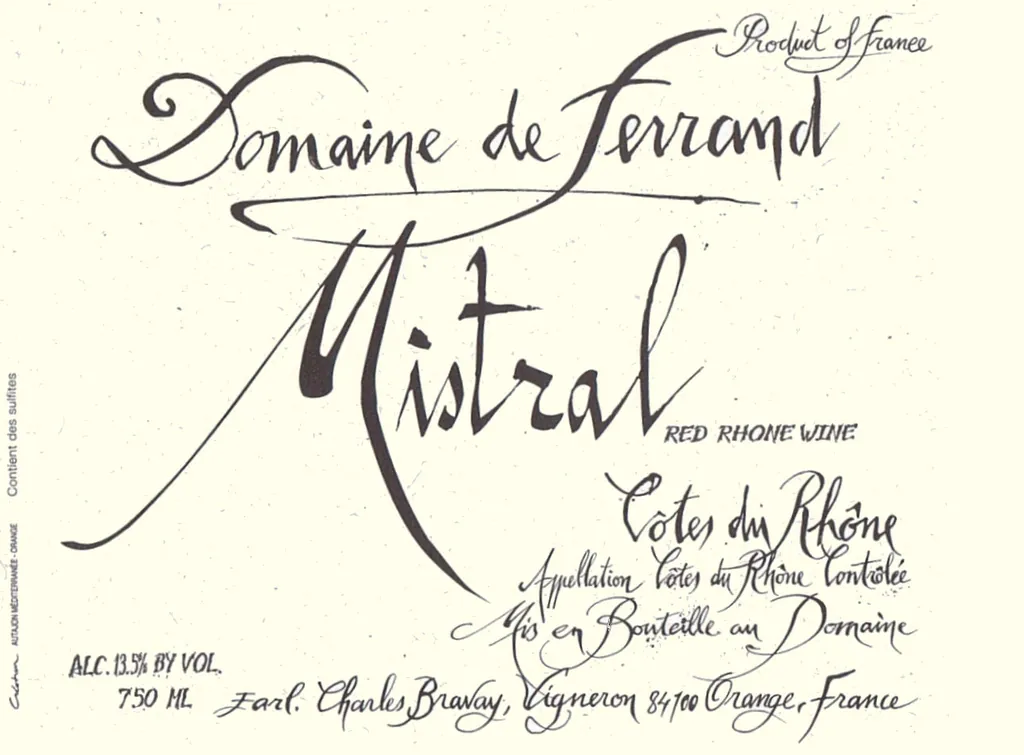 Product of France
Domaine de Ferrand
Mistral
RED RHONE WINE
Côtes du Rhône
Appellation Côtes du Rhône Contrôlée
Mis en Bouteille au Domaine
ALC. 13.5% BY VOL.
750 ML
Earl. Charles Bravay, Vigneron 84100 Orange, France
Contient des sulfites
AUTAJON MÉDITERRANÉE - ORANGE